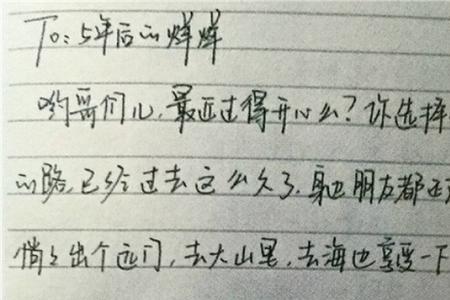 To:5年后的烨烨
哟哥们儿,最近过得开心么?你选择
的路,已经过去这么久了,身边朋友都还
悄悄出个远门,去大山里,去海边享受一下